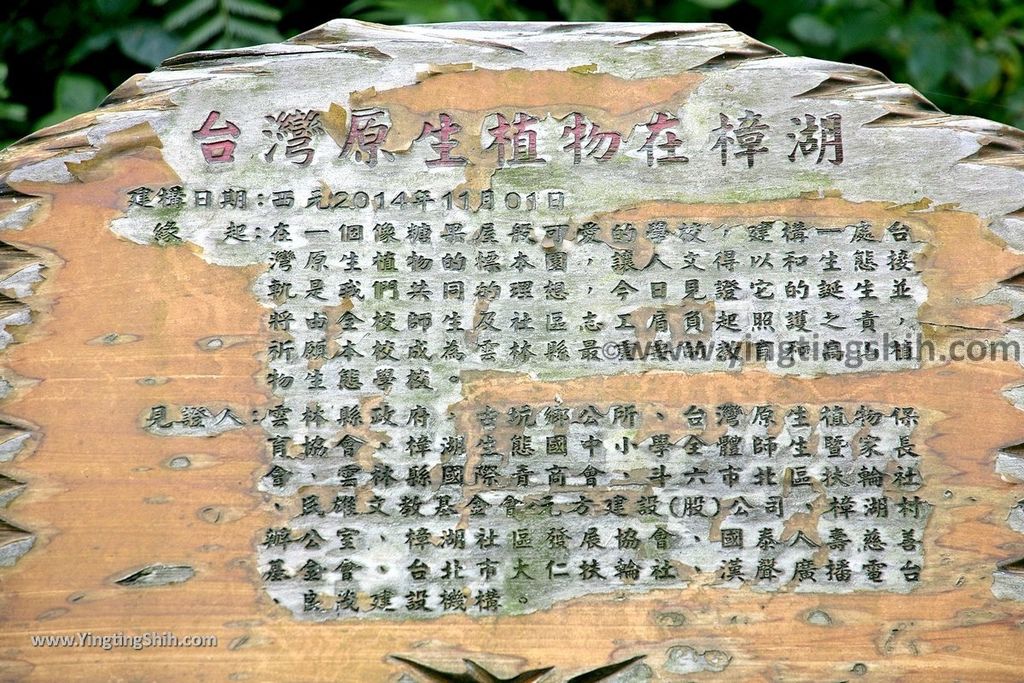 台灣原生植物在樟湖
建構日期：西元2014年11月01日
緣 起：在一個像糖果屋般可愛的學校，建構一處台
灣原生植物的標本園，讓人文得以和生態接
軌是我們共同的理想，今日見證它的誕生並
將由全校師生及社區志工肩負起照護之責，
祈願本校成為雲林縣最 植
物生態學校。
見證人：雲林縣政府、古坑鄉公所、台灣原生植物保
育協會、樟湖生態國中小學全體師生暨家長
會、雲林縣國際青商會、斗六市北區扶輪社
、民雄文教基金會、元方建設(股)公司、樟湖村
辦公室、樟湖社區發展協會、國泰人壽慈善
基金會、台北市大仁扶輪社、漢聲廣播電台
、良茂建設機構。
©www.yingtingshih.com
www.YingtingShih.com
www.YingtingShih.com